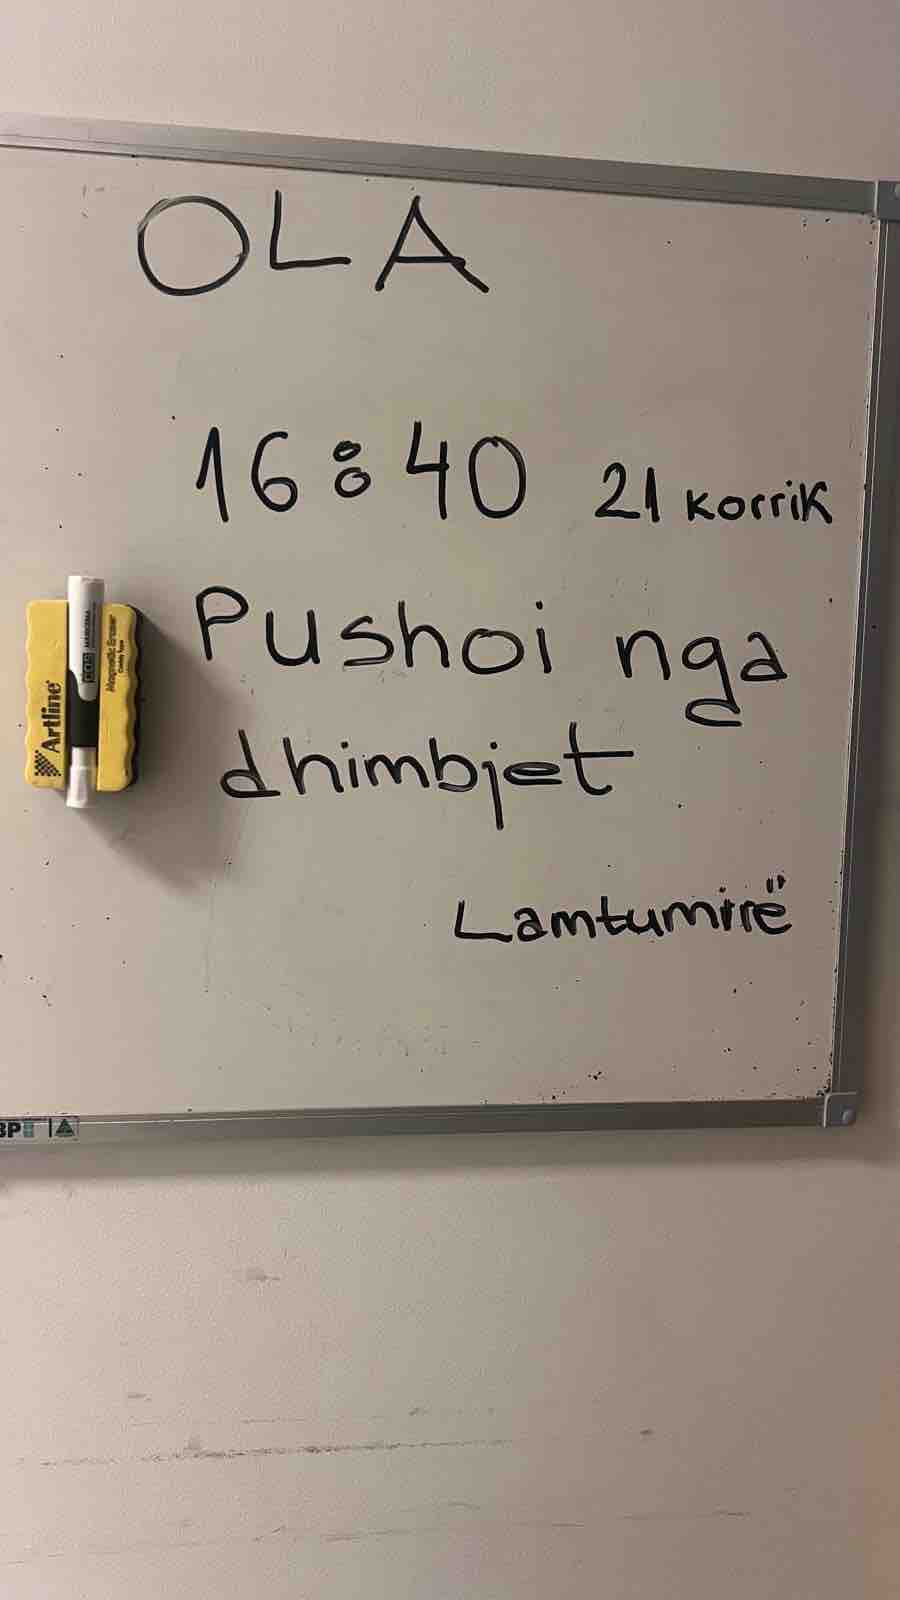 OLA
16:40 21 korrik
Pushoi nga
dhimbjet
Lamtumirë
Artline
Magnetic Eraser